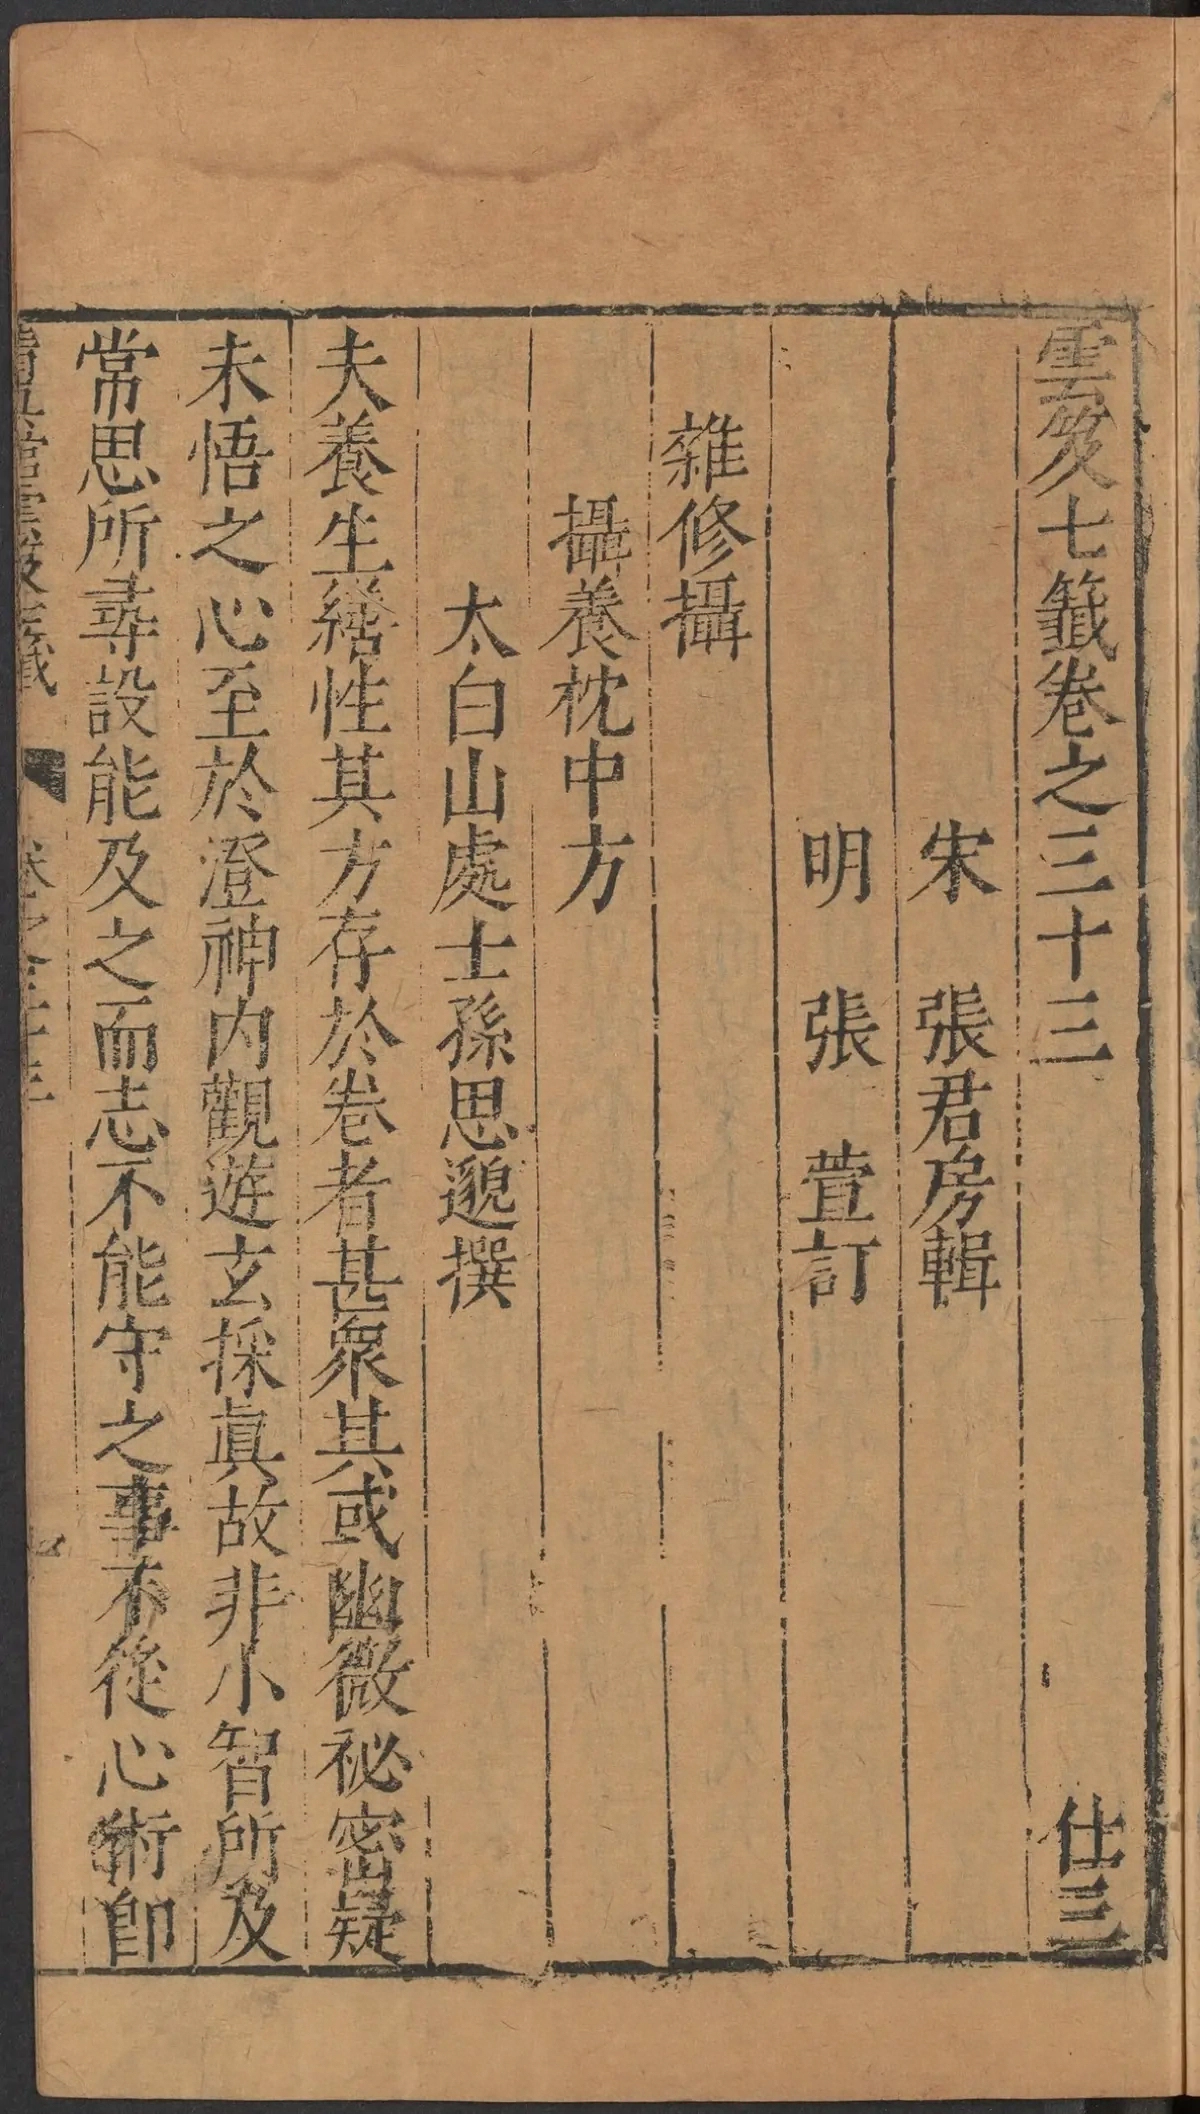 雲笈七籤卷之三十三 仕三
宋 張君房輯
明 張 萱訂
雜修攝
攝養枕中方
太白山處士孫思邈撰
夫養生繕性其方存於卷者甚衆其或幽微祕密疑
未悟之心至於澄神內觀遊玄採眞故非小智所及
常思所尋設能及之而志不能守之事不從心術卽
清眞館雲笈七籤 卷之三十三